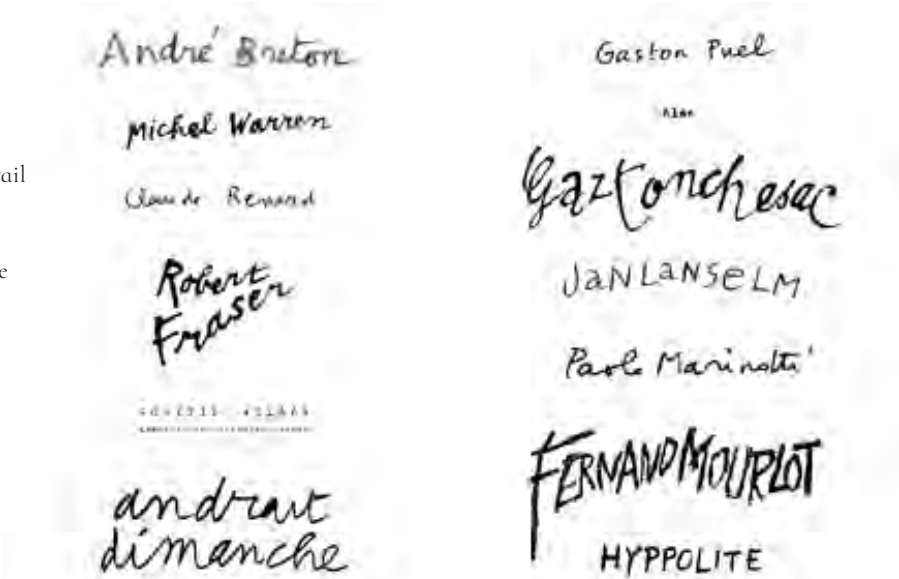 ail
e
André Breton
Michel Warren
Claude Renard
Robert
Fraser
andrait
dimanche
Gaston Puel
Gaztonchesac
JaNLaNSeLM
Paolo Marinotti
FERNANDMOURLOT
HYPPOLITE